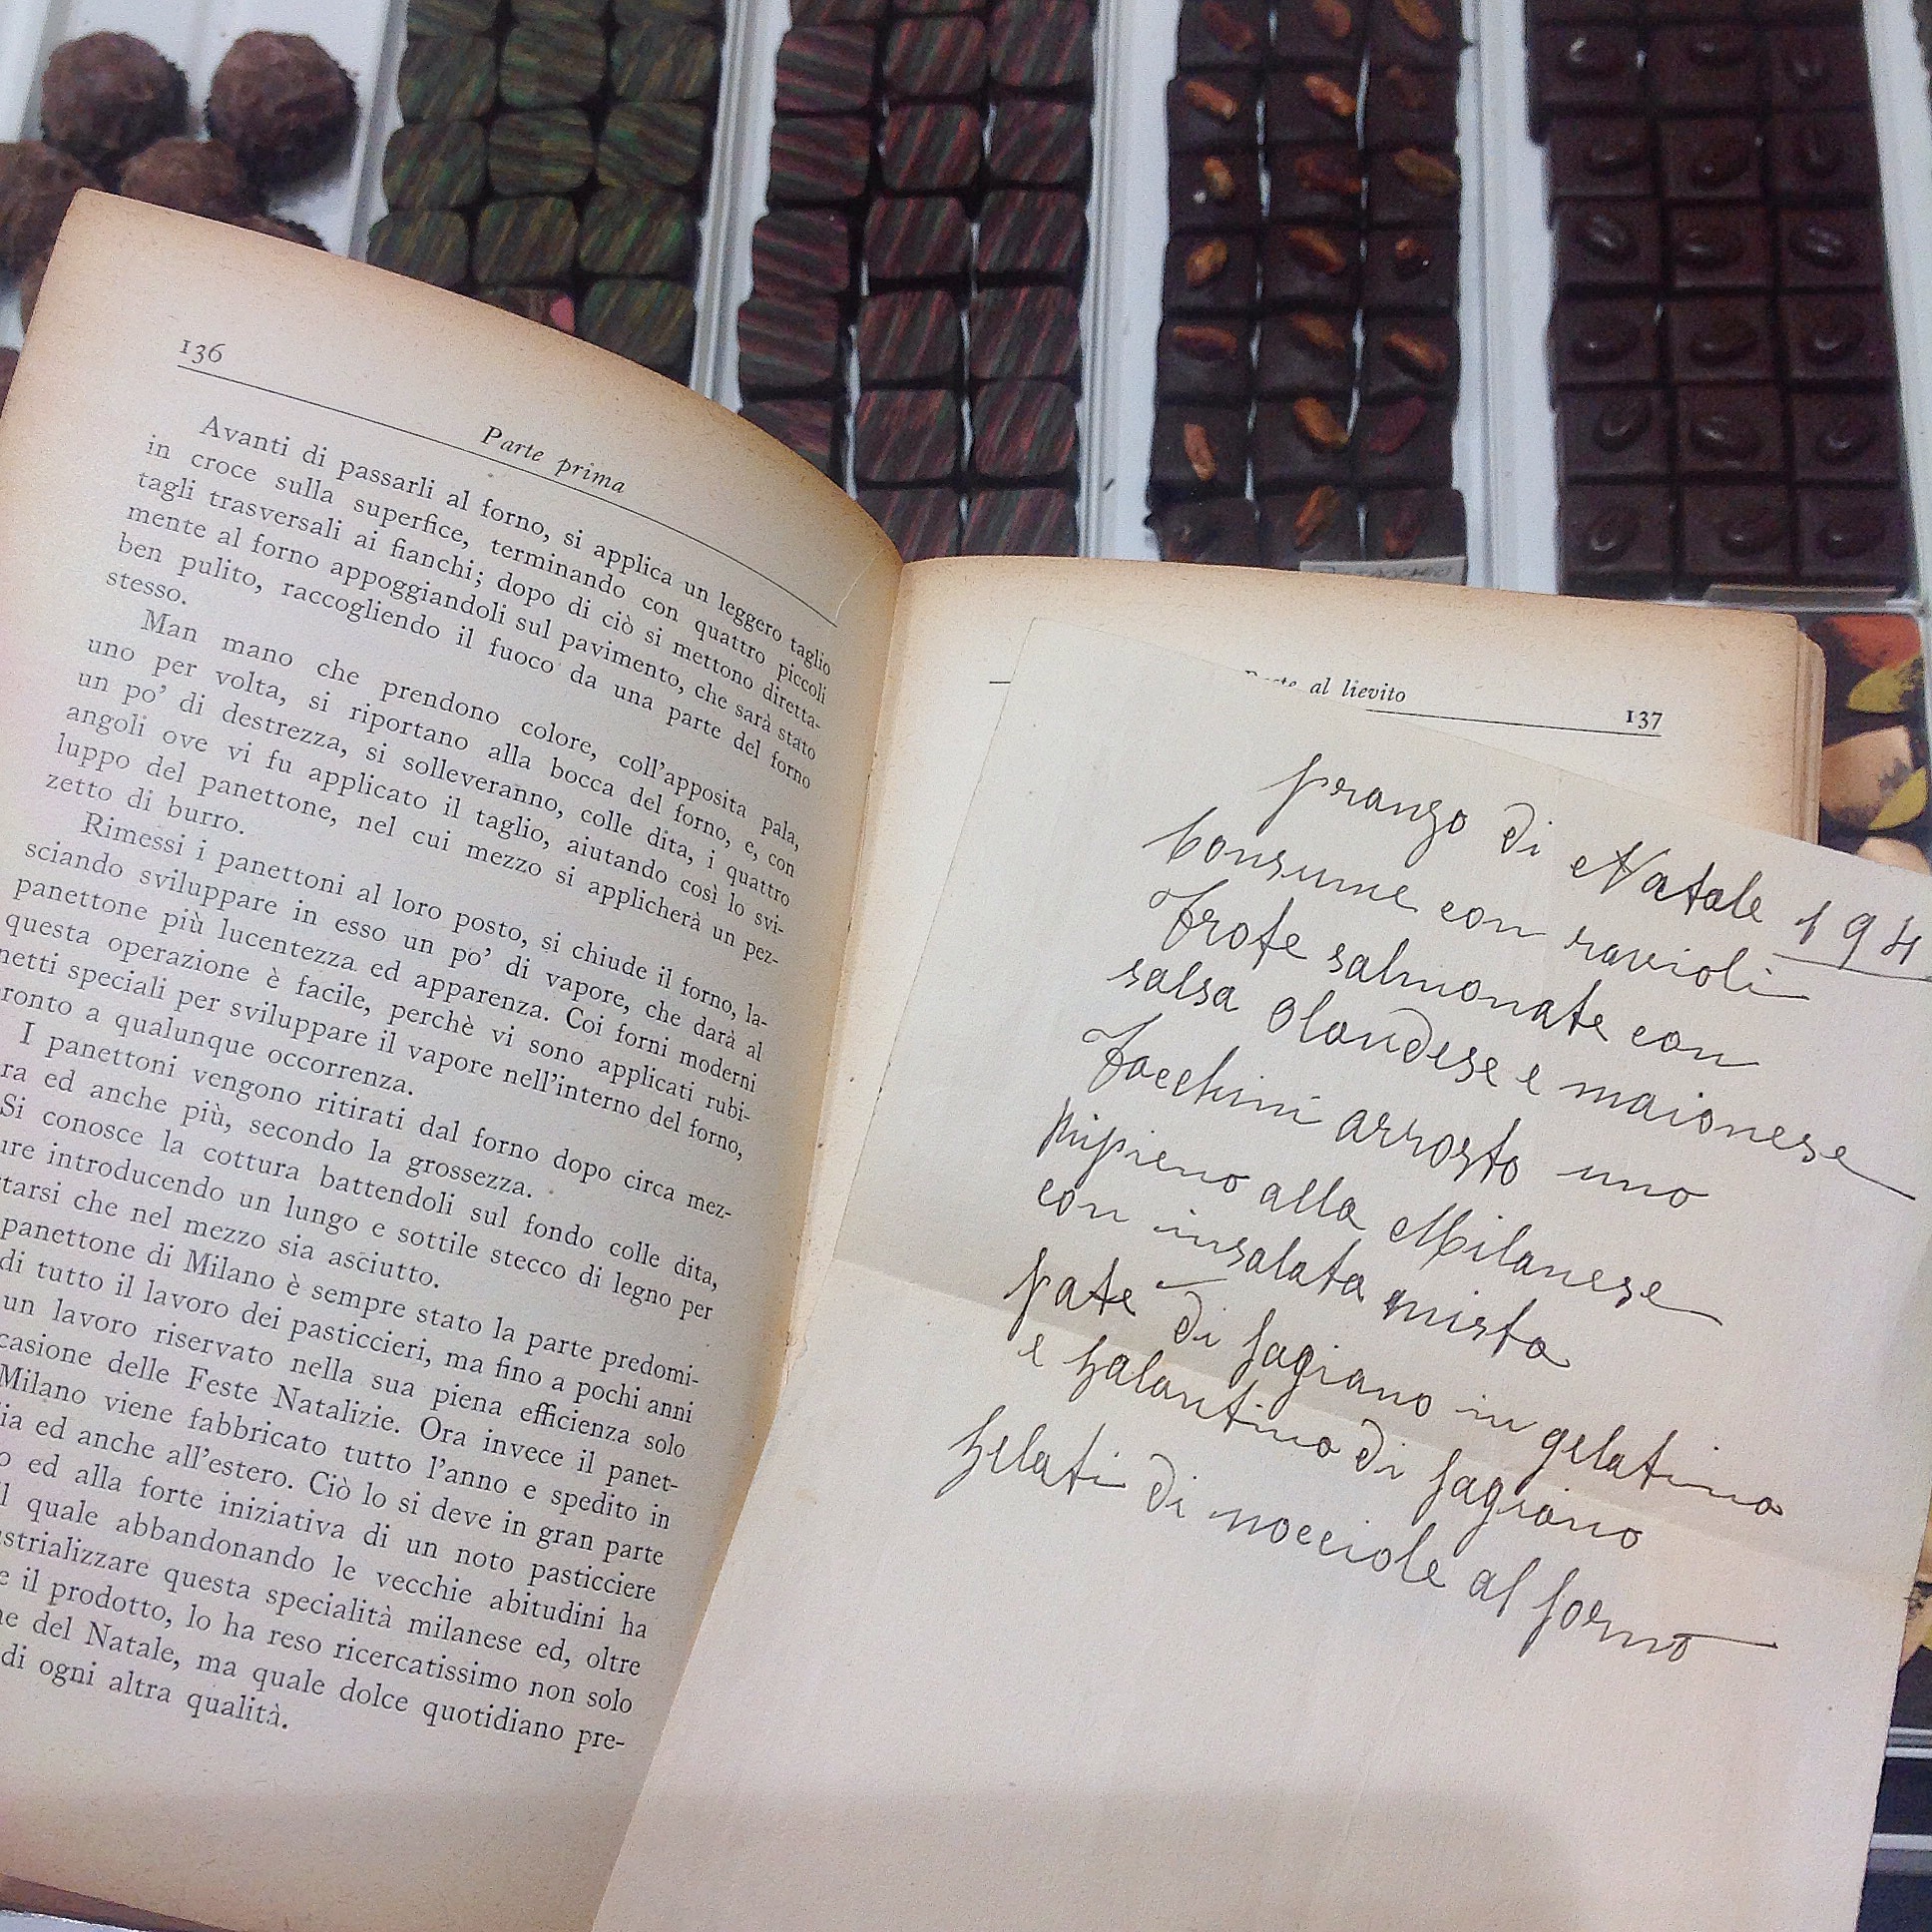 136
Parte prima
Avanti di passarli al forno, si applica un leggero taglio
in croce sulla superfice, terminando con quattro piccoli
tagli trasversali ai fianchi; dopo di ciò si mettono diretta-
mente al forno appoggiandoli sul pavimento, che sarà stato
ben pulito, raccogliendo il fuoco da una parte del forno
stesso.
Man mano che prendono colore, coll'apposita pala,
uno per volta, si riportano alla bocca del forno, e, con
un po' di destrezza, si solleveranno, colle dita, i quattro
angoli ove vi fu applicato il taglio, aiutando così lo svi-
luppo del panettone, nel cui mezzo si applicherà un pez-
zetto di burro.
Rimessi i panettoni al loro posto, si chiude il forno, la-
sciando sviluppare in esso un po' di vapore, che darà al
panettone più lucentezza ed apparenza. Coi forni moderni
questa operazione è facile, perchè vi sono applicati rubi-
netti speciali per sviluppare il vapore nell'interno del forno,
pronto a qualunque occorrenza.
I panettoni vengono ritirati dal forno dopo circa mez-
ra ed anche più, secondo la grossezza.
Si conosce la cottura battendoli sul fondo colle dita,
ure introducendo un lungo e sottile stecco di legno per
tarsi che nel mezzo sia asciutto.
panettone di Milano è sempre stato la parte predomi-
di tutto il lavoro dei pasticcieri, ma fino a pochi anni
un lavoro riservato nella sua piena efficienza solo
casione delle Feste Natalizie. Ora invece il panet-
Milano viene fabbricato tutto l'anno e spedito in
ia ed anche all'estero. Ciò lo si deve in gran parte
o ed alla forte iniziativa di un noto pasticciere
il quale abbandonando le vecchie abitudini ha
ustrializzare questa specialità milanese ed, oltre
e il prodotto, lo ha reso ricercatissimo non solo
ne del Natale, ma quale dolce quotidiano pre-
di ogni altra qualità.
al lievito
137
pranzo di Natale 194
Consume con ravioli
Trote salmonate con
salsa olandese e maionese
Tacchini arrosto uno
ripieno alla Milanese
con insalata mista
pate di fagiano in gelatina
e galantina di fagiano
gelati di nocciole al forno